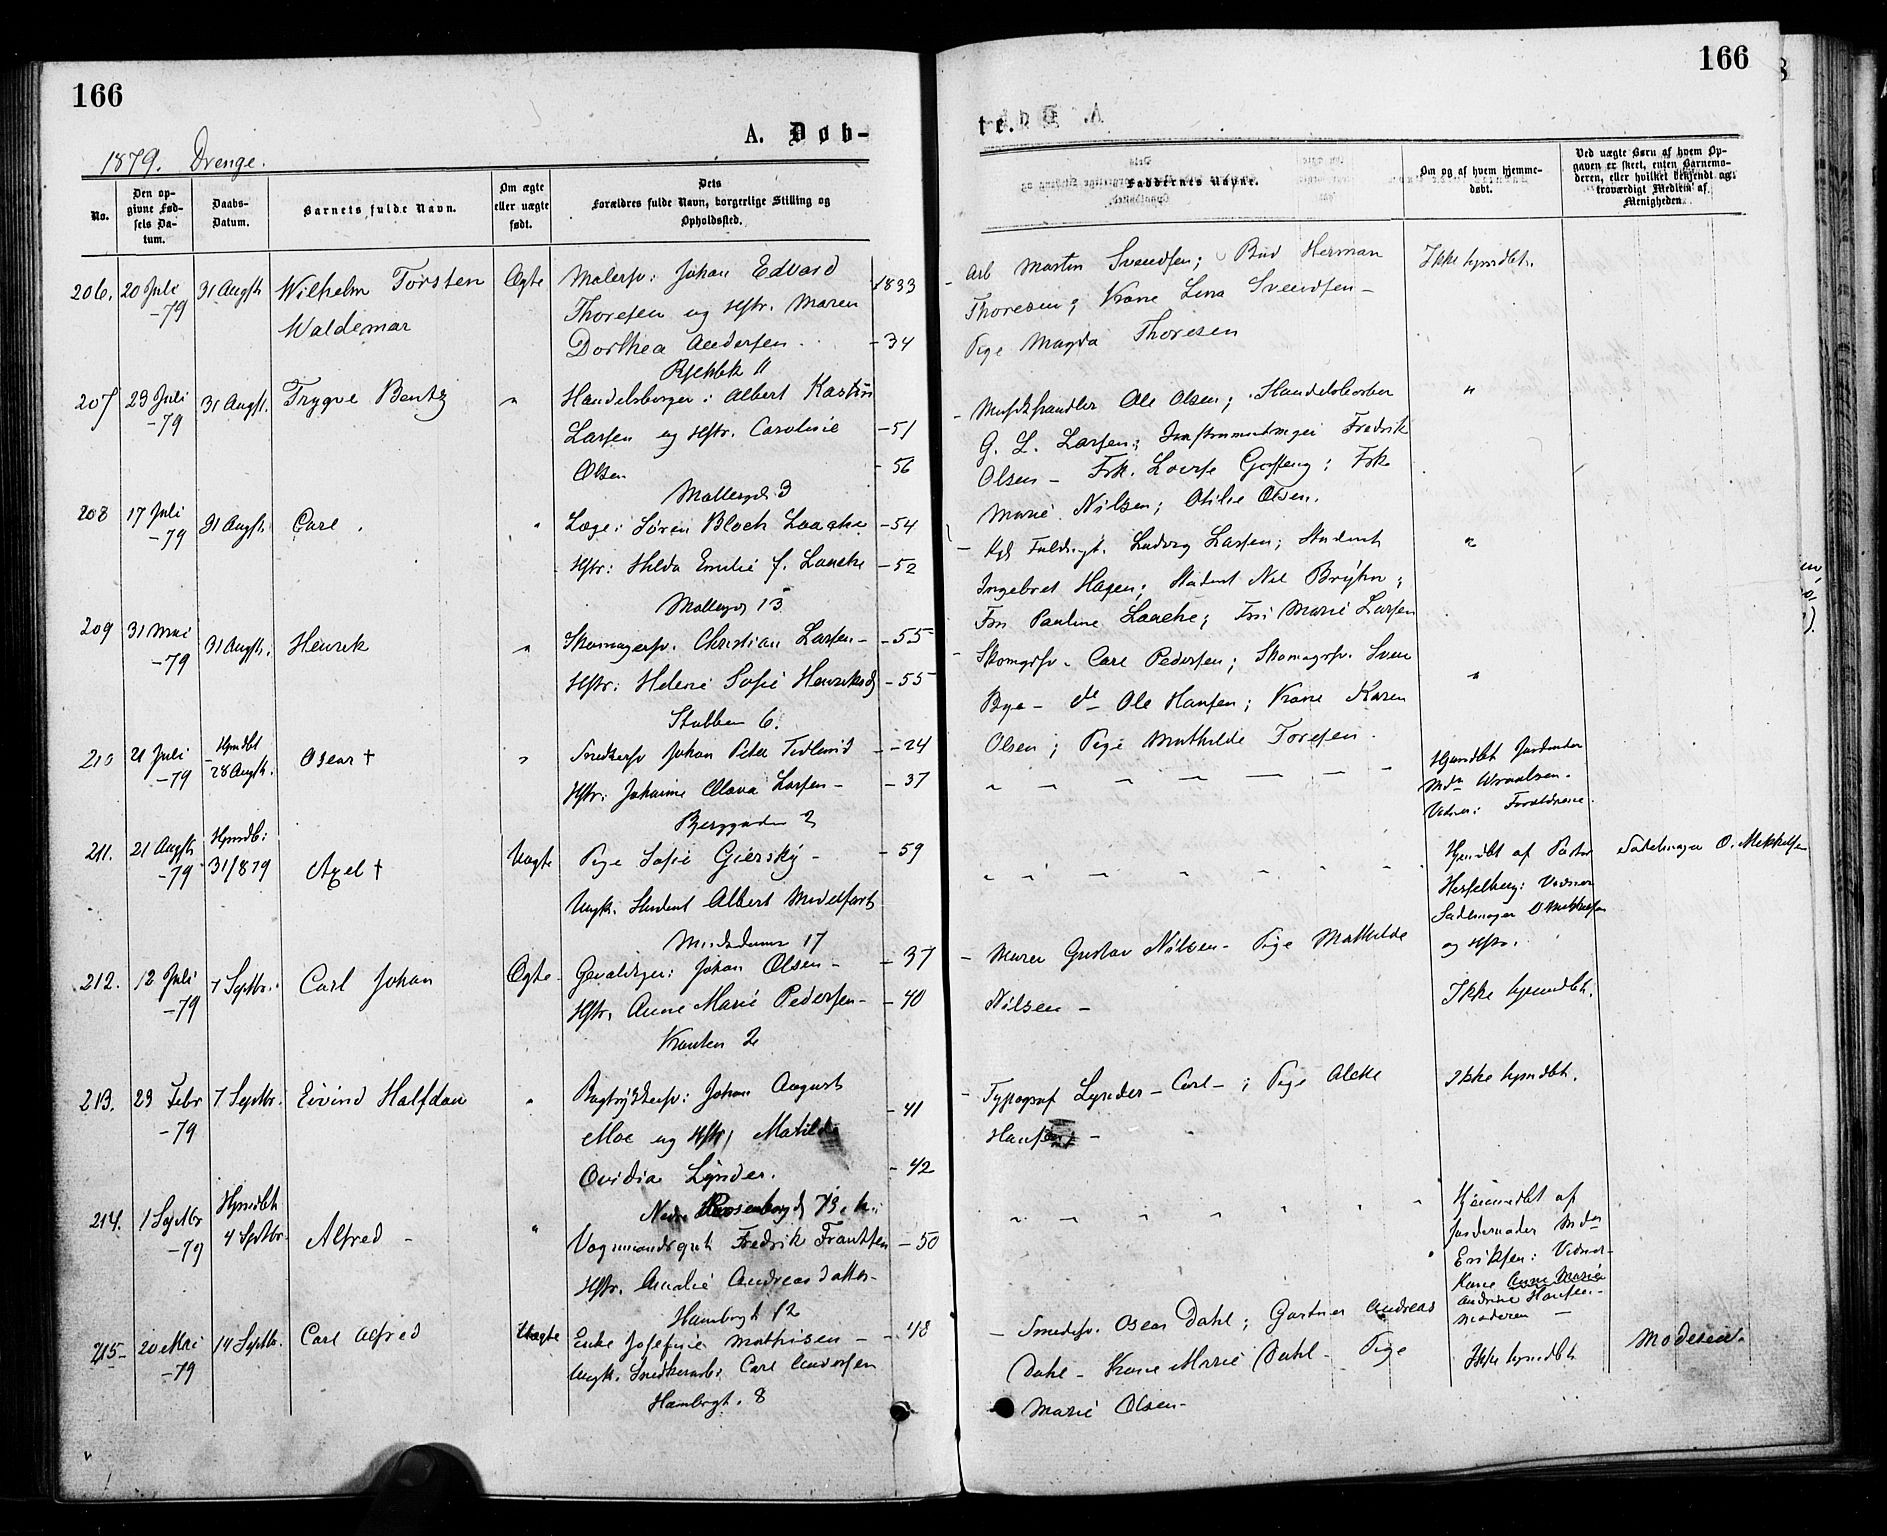 166
166
A. Døb-
te.
1879. Drenge.
No.
Den opgivne Fødsels Datum.
Daabs-Datum.
Barnets fulde Navn.
Om ægte eller uægte født.
Dets Forældres fulde Navn, borgerlige Stilling og Opholdssted.
Faddernes Navne.
Om og af hvem hjemmedøbt.
Ved uægte Børn af hvem Opgaven er skeet, enten Barnemoderen, eller hvilket bekjendt og troværdigt Medlem af Menigheden.
206. 20 Juli -79 31 Augst. Wilhelm Torsten Waldemar Ægte
Malersv: Johan Edvard 1833
Thoresen og Hstr. Maren
Dorthea Andersen -34
11
Arb Martin Svendsen; Bud Herman
Thoresen; Kone Lina Svendsen -
Pige Magda Thoresen
Ikke hjemdbt.
207 23 Juli -79 31 Augst. Trygve Bentz "
Handelsborger: Albert
Larsen og Hstr. Caroline -51
Olsen -56
Møllergd. 3
Musikhandler Ole Olsen;
G. L. Larsen; Fredrik
Olsen - Frk. Lovise; Frk
Marie Nilsen; Otilie Olsen.
"
208 17 Juli -79 31 Augst. Carl "
Læge: Søren Bloch Laache -54
Hstr: Hilda Emilie f. Laache -52
Møllergd 15
Fuldmgt. Ludvig Larsen; Student
Ingebret Hagen; Student Nil Bryhn;
Frn Pauline Laache; Frn Marie Larsen
"
209 31 Mai -79 31 Augst. Henrik "
Skomagersv. Christian Larsen - -55
Hstr: Helene Sofie Henriksd -55
Stubben 6.
Skomgrsv. Carl Pedersen; Skomagrsv. Sven
Bye - do Ole Hansen; Kone Karen
Olsen; Pige Mathilde Toresen.
"
210 21 Juli -79 Hjmdbt 28 Augst. Oscar † "
Snedkersv Johan Peter -24
Hstr: Johanne Olava Larsen - -37
Berggaden 2
Hjemdbt Jordmoder
Md
Vidner: Forældrene.
211. 21 Augst -79 Hjmdb: 31/8 79 Axel † Uægte
Pige Sofie Giersky - -59
Ungk. Student Albert
17
Hjemdbt af Pastor
Hesselberg: Vidner
Sadelmager O Mikkelsen
og Hstr.
Sadelmager O. Mikkelsen
212. 12 Juli -79 7 Septbr. Carl Johan Ægte
Gevaldiger: Johan Olsen - -37
Hstr. Anne Marie Pedersen - -40
Kranten 2
Murer Gustav Nilsen - Pige Mathilde
Nilsen -
Ikke hjemdbt.
213. 23 Febr -79 7 Septbr. Eivind Halfdan "
Bogtrykkersv: Johan August -41
Moe og Hstr Matilde
Ovidia Lynder. -42
Nedre Rosenborggd
Typograf Lynder - Carl - ; Pige
Hansen -
Ikke hjemdbt.
214. 1 Septbr -79 Hjemdbt 4 Septbr. Alfred - "
Vognmandsgut Fredrik Frantsen -50
Hstr. Amalie Andreasdatter -
Hambrogt 12
Hjemmedbt af
Jordemoder Md
Eriksen: Vidner -
Kone Anne Marie
Andrine Hansen -
Moderen -
215- 20 Mai -79 14 Septbr. Carl Alfred Uægte
Enke Josefine Mathisen - -48
Ungk. Snedkerarb: Carl Andersen
Hambrogt. 8
Smedsv. Oscar Dahl; Gartner Andreas
Dahl - Kone Marie Dahl - Pige
Marie Olsen -
Ikke hjemdbt
Moderen -